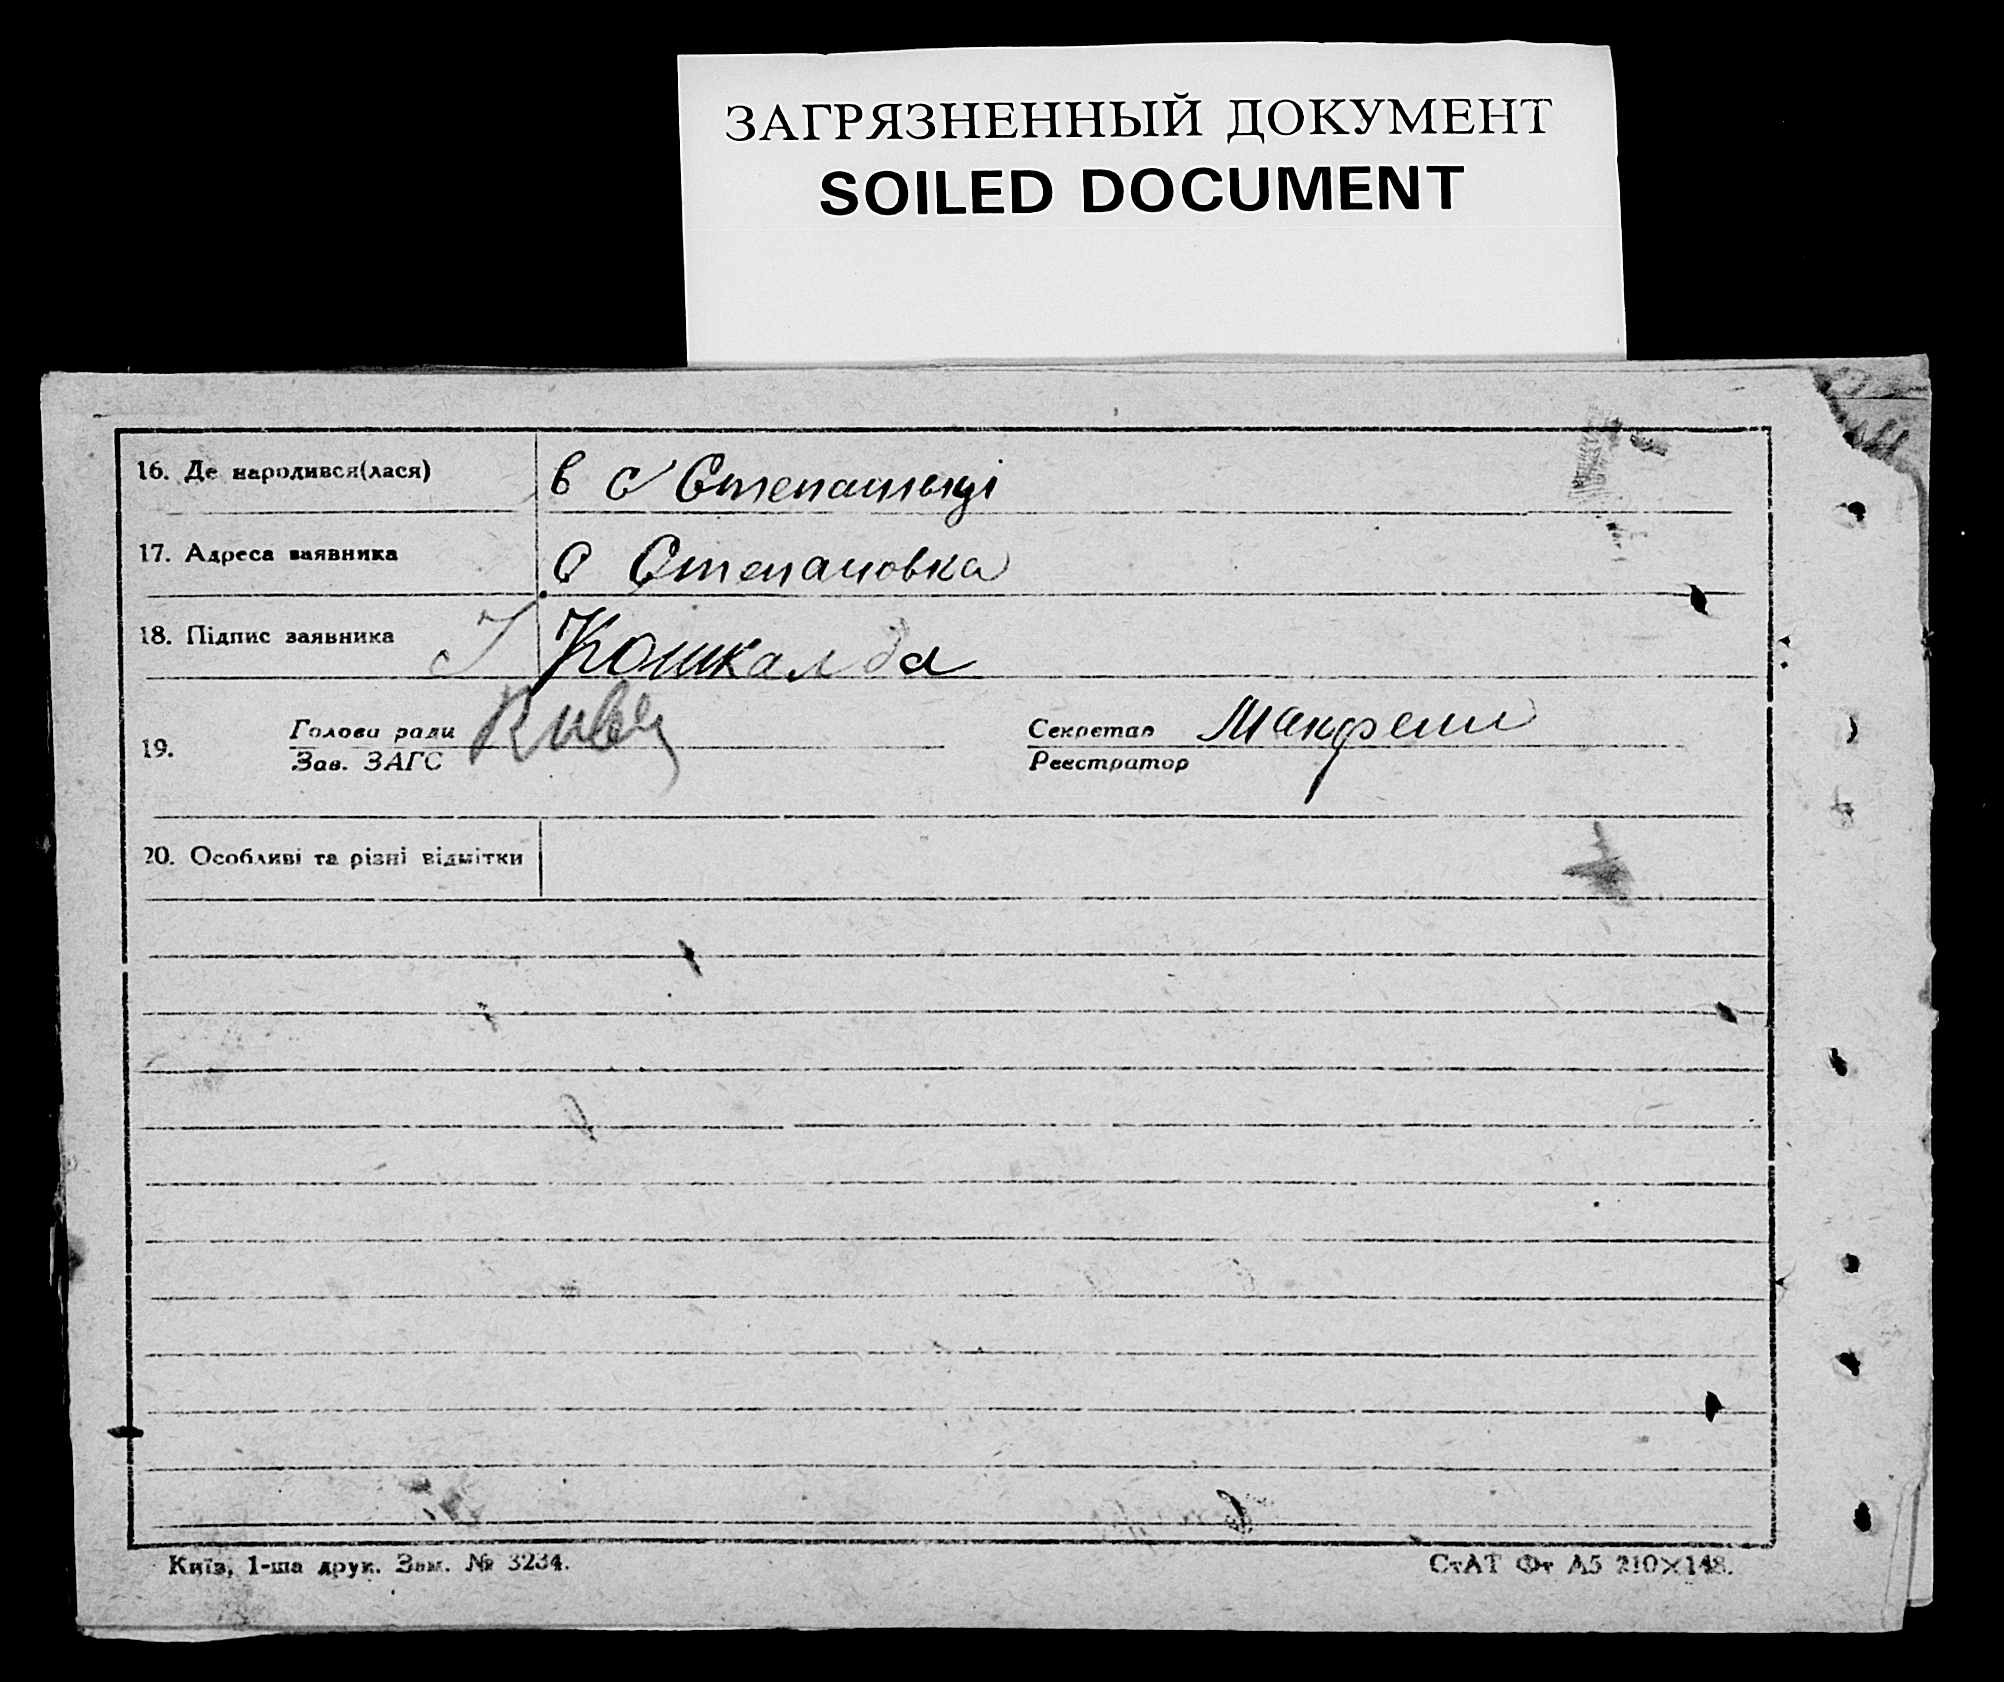 ЗАГРЯЗНЕННЫЙ ДОКУМЕНТ
SOILED DOCUMENT
16. Де народився(лася) в с Степанівці
17. Адреса заявника с Степановка
18. Підпис заявника І Кошкалда
19. Голова ради
Зав. ЗАГС
Секретар
Реєстратор
20. Особливі та різні відмітки
Київ, 1-ша друк. Зам. № 3234.
СтАТ Фт А5 210×148.